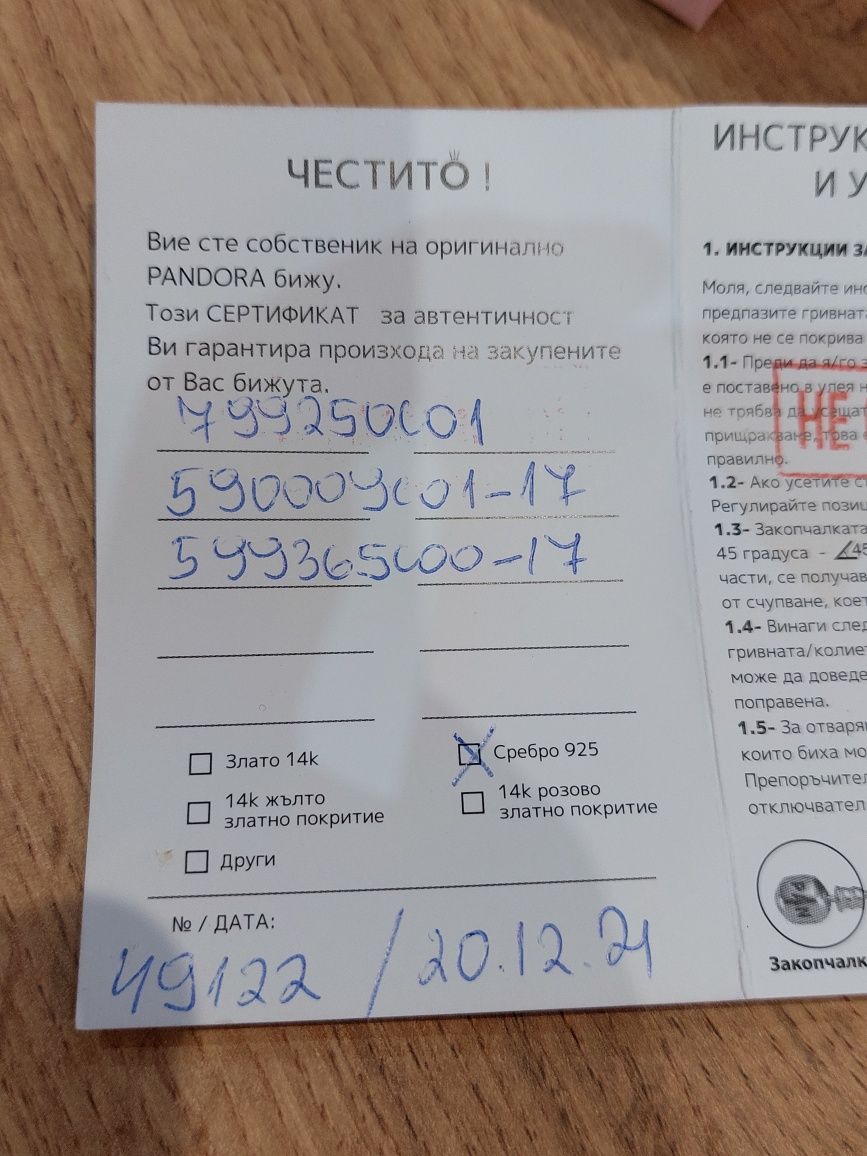 ЧЕСТИТО !
Вие сте собственик на оригинално
PANDORA бижу.
Този СЕРТИФИКАТ за автентичност
Ви гарантира произхода на закупените
от Вас бижута.
799250C01
590009C01-17
599365C00-17
Злато 14k
Сребро 925
14k жълто
златно покритие
14k розово
златно покритие
Други
№ / ДАТА:
49122 / 20.12.21
ИНСТРУК
И У
1. ИНСТРУКЦИИ ЗА
Моля, следвайте инс
предпазите гривната
която не се покрива
1.1- Преди да я/го з
е поставено в улея н
не трябва да усещат
прищракване, това
правилно.
1.2- Ако усетите с
Регулирайте позиц
1.3- Закопчалката
45 градуса - ∠45
части, се получав
от счупване, коет
1.4- Винаги след
гривната/колие
може да доведе
поправена.
1.5- За отваря
които биха мо
Препоръчител
отключвател
Закопчалк
НЕ